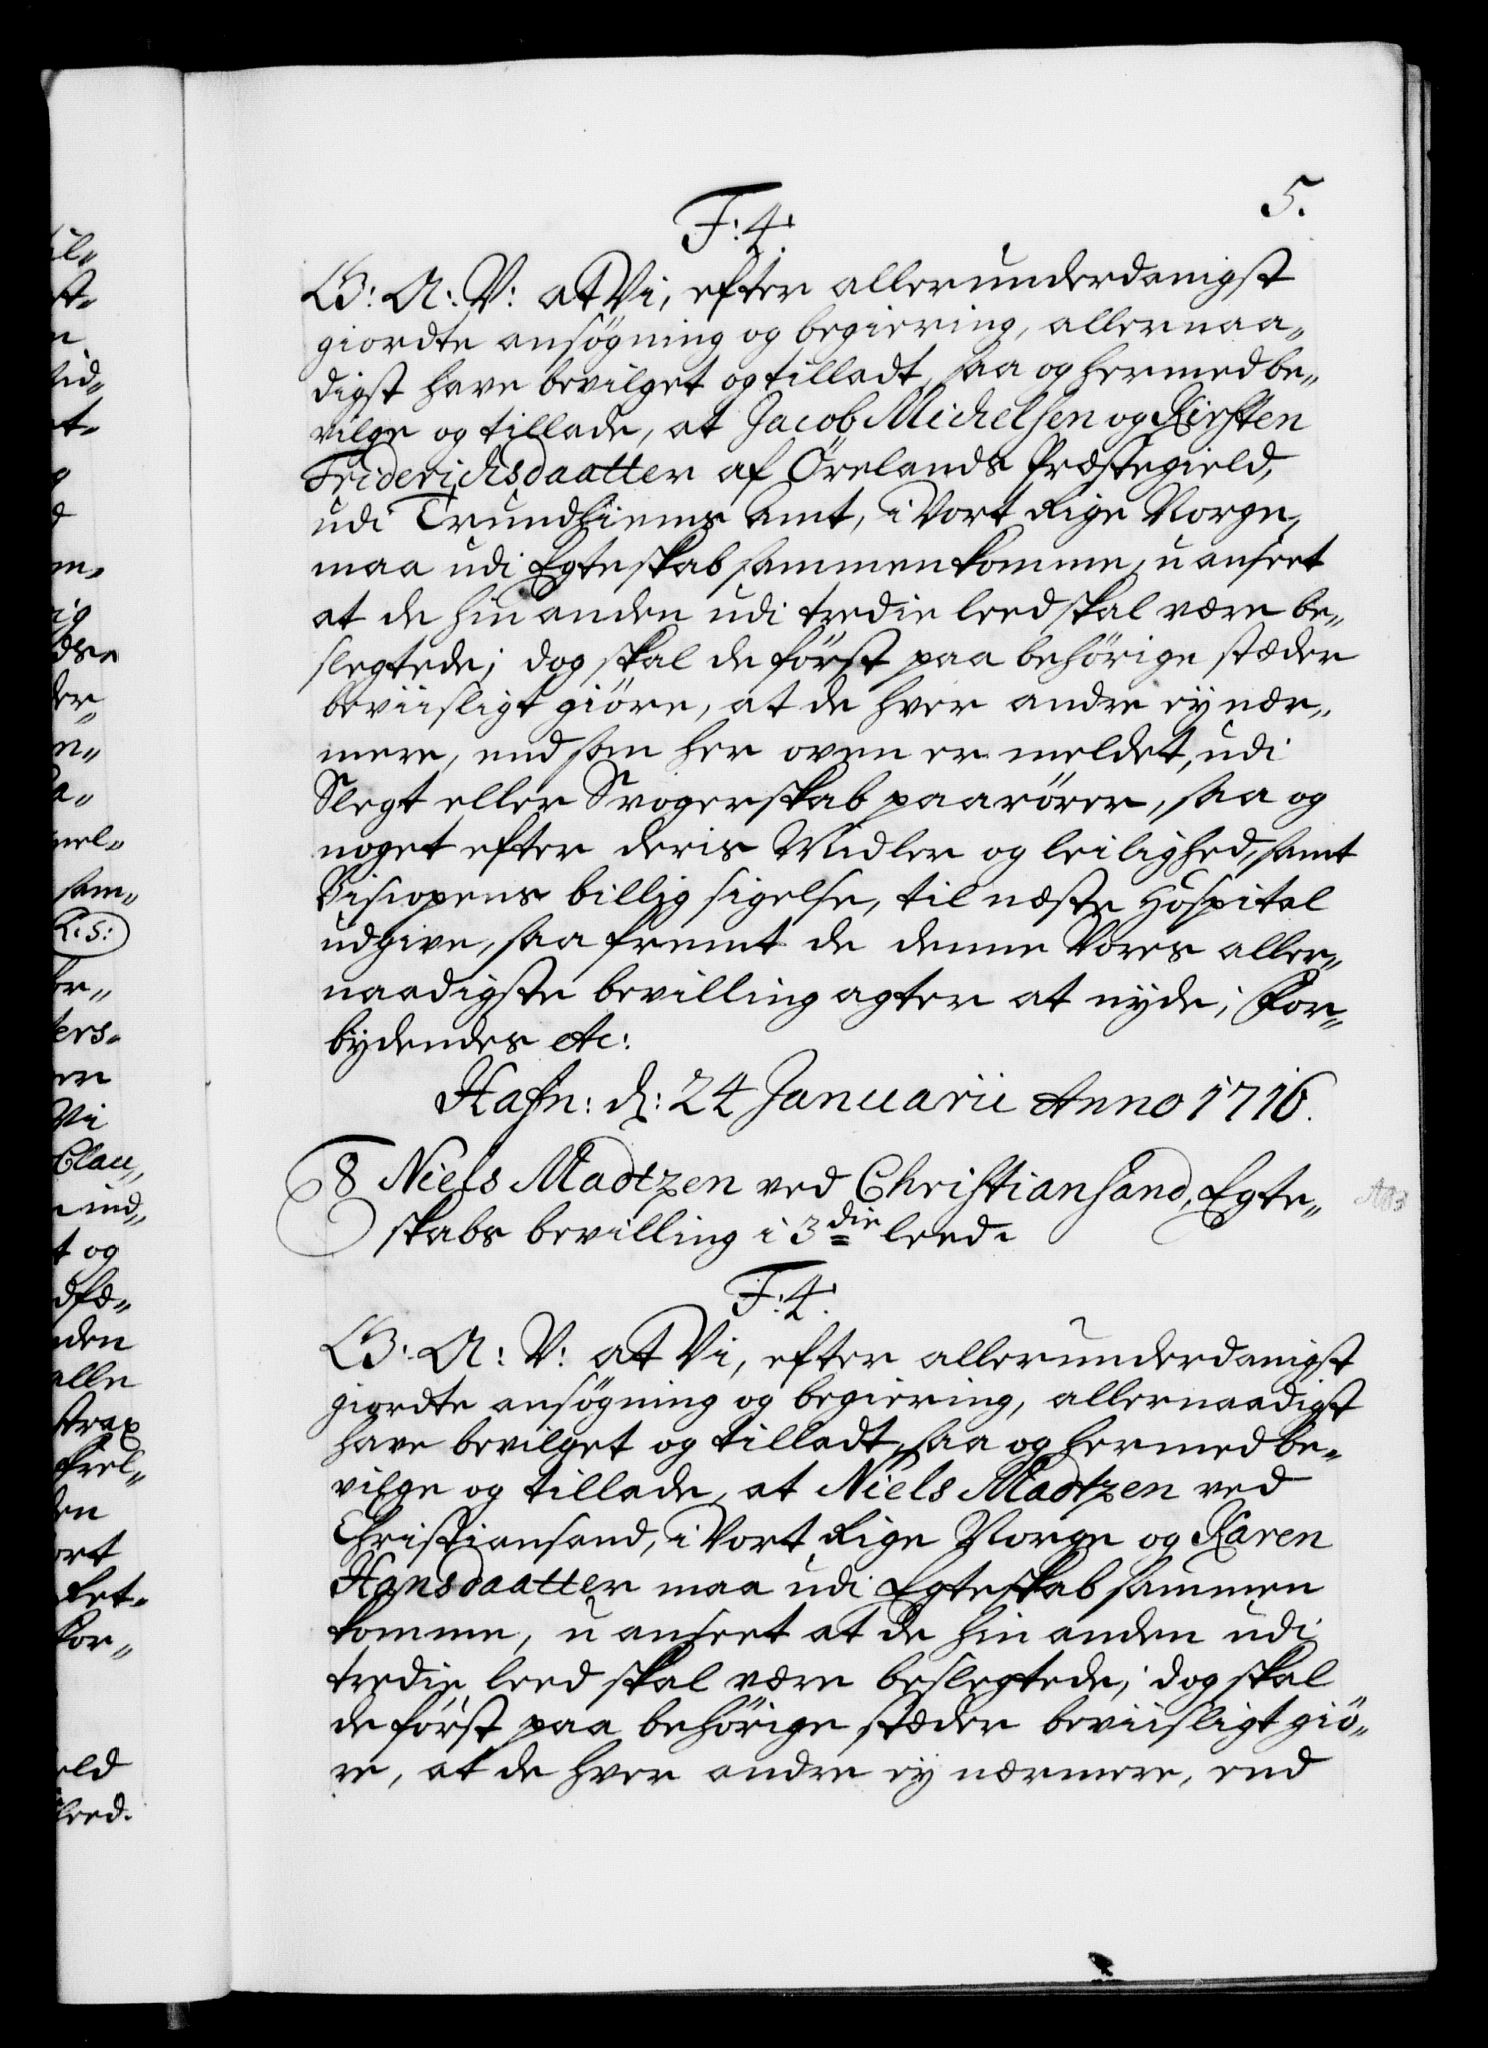 5.
F: 4.
G: A: V: at Vi, efter allerunderdanigst
giordte ansøgning og begiering, allernaa„
digst have bevilget og tilladt, saa og hermed be„
vilge og tillade, at Jacob Michelsen og Kirsten
Friderichsdaatter af Örelands Præstegield,
udi Trundhiems Amt, i Vort Rige Norge,
maa udi Egteskab sammenkomme, uanseet
at de hinanden udi tredie leed skal være be„
slegtede; dog skal de först paa behörige stæder
beviisligt giöre, at de hver andre ey nær„
mere, end som her oven er meldet, udi
Slegt eller Svogerskab paarörer, saa og
noget efter deris Midler og leilighed, samt
Biscopens billig sigelse, til næste Hospital
udgive, saa fremt de denne Vores aller„
naadigste bevilling agter at nyde; For„
bydendes etc:
Hafn: d: 24 Januarii Anno 1716.
8 Niels Madtzen ved Christiansand, Egte„
skabs bevilling i 3die leed.
F: 4.
G: A: V: at Vi, efter allerunderdanigst
giordte ansøgning og begiering, allernaadigst
have bevilget og tilladt, saa og hermed be„
vilge og tillade, at Niels Madtzen ved
Christiansand, i Vort Rige Norge og Karen
Hansdaatter maa udi Egteskab sammen
komme, uanseet at de hinanden udi
tredie leed skal være beslegtede; dog skal
de först paa behörige stæder beviisligt giö„
re, at de hver andre ey nærmere, end